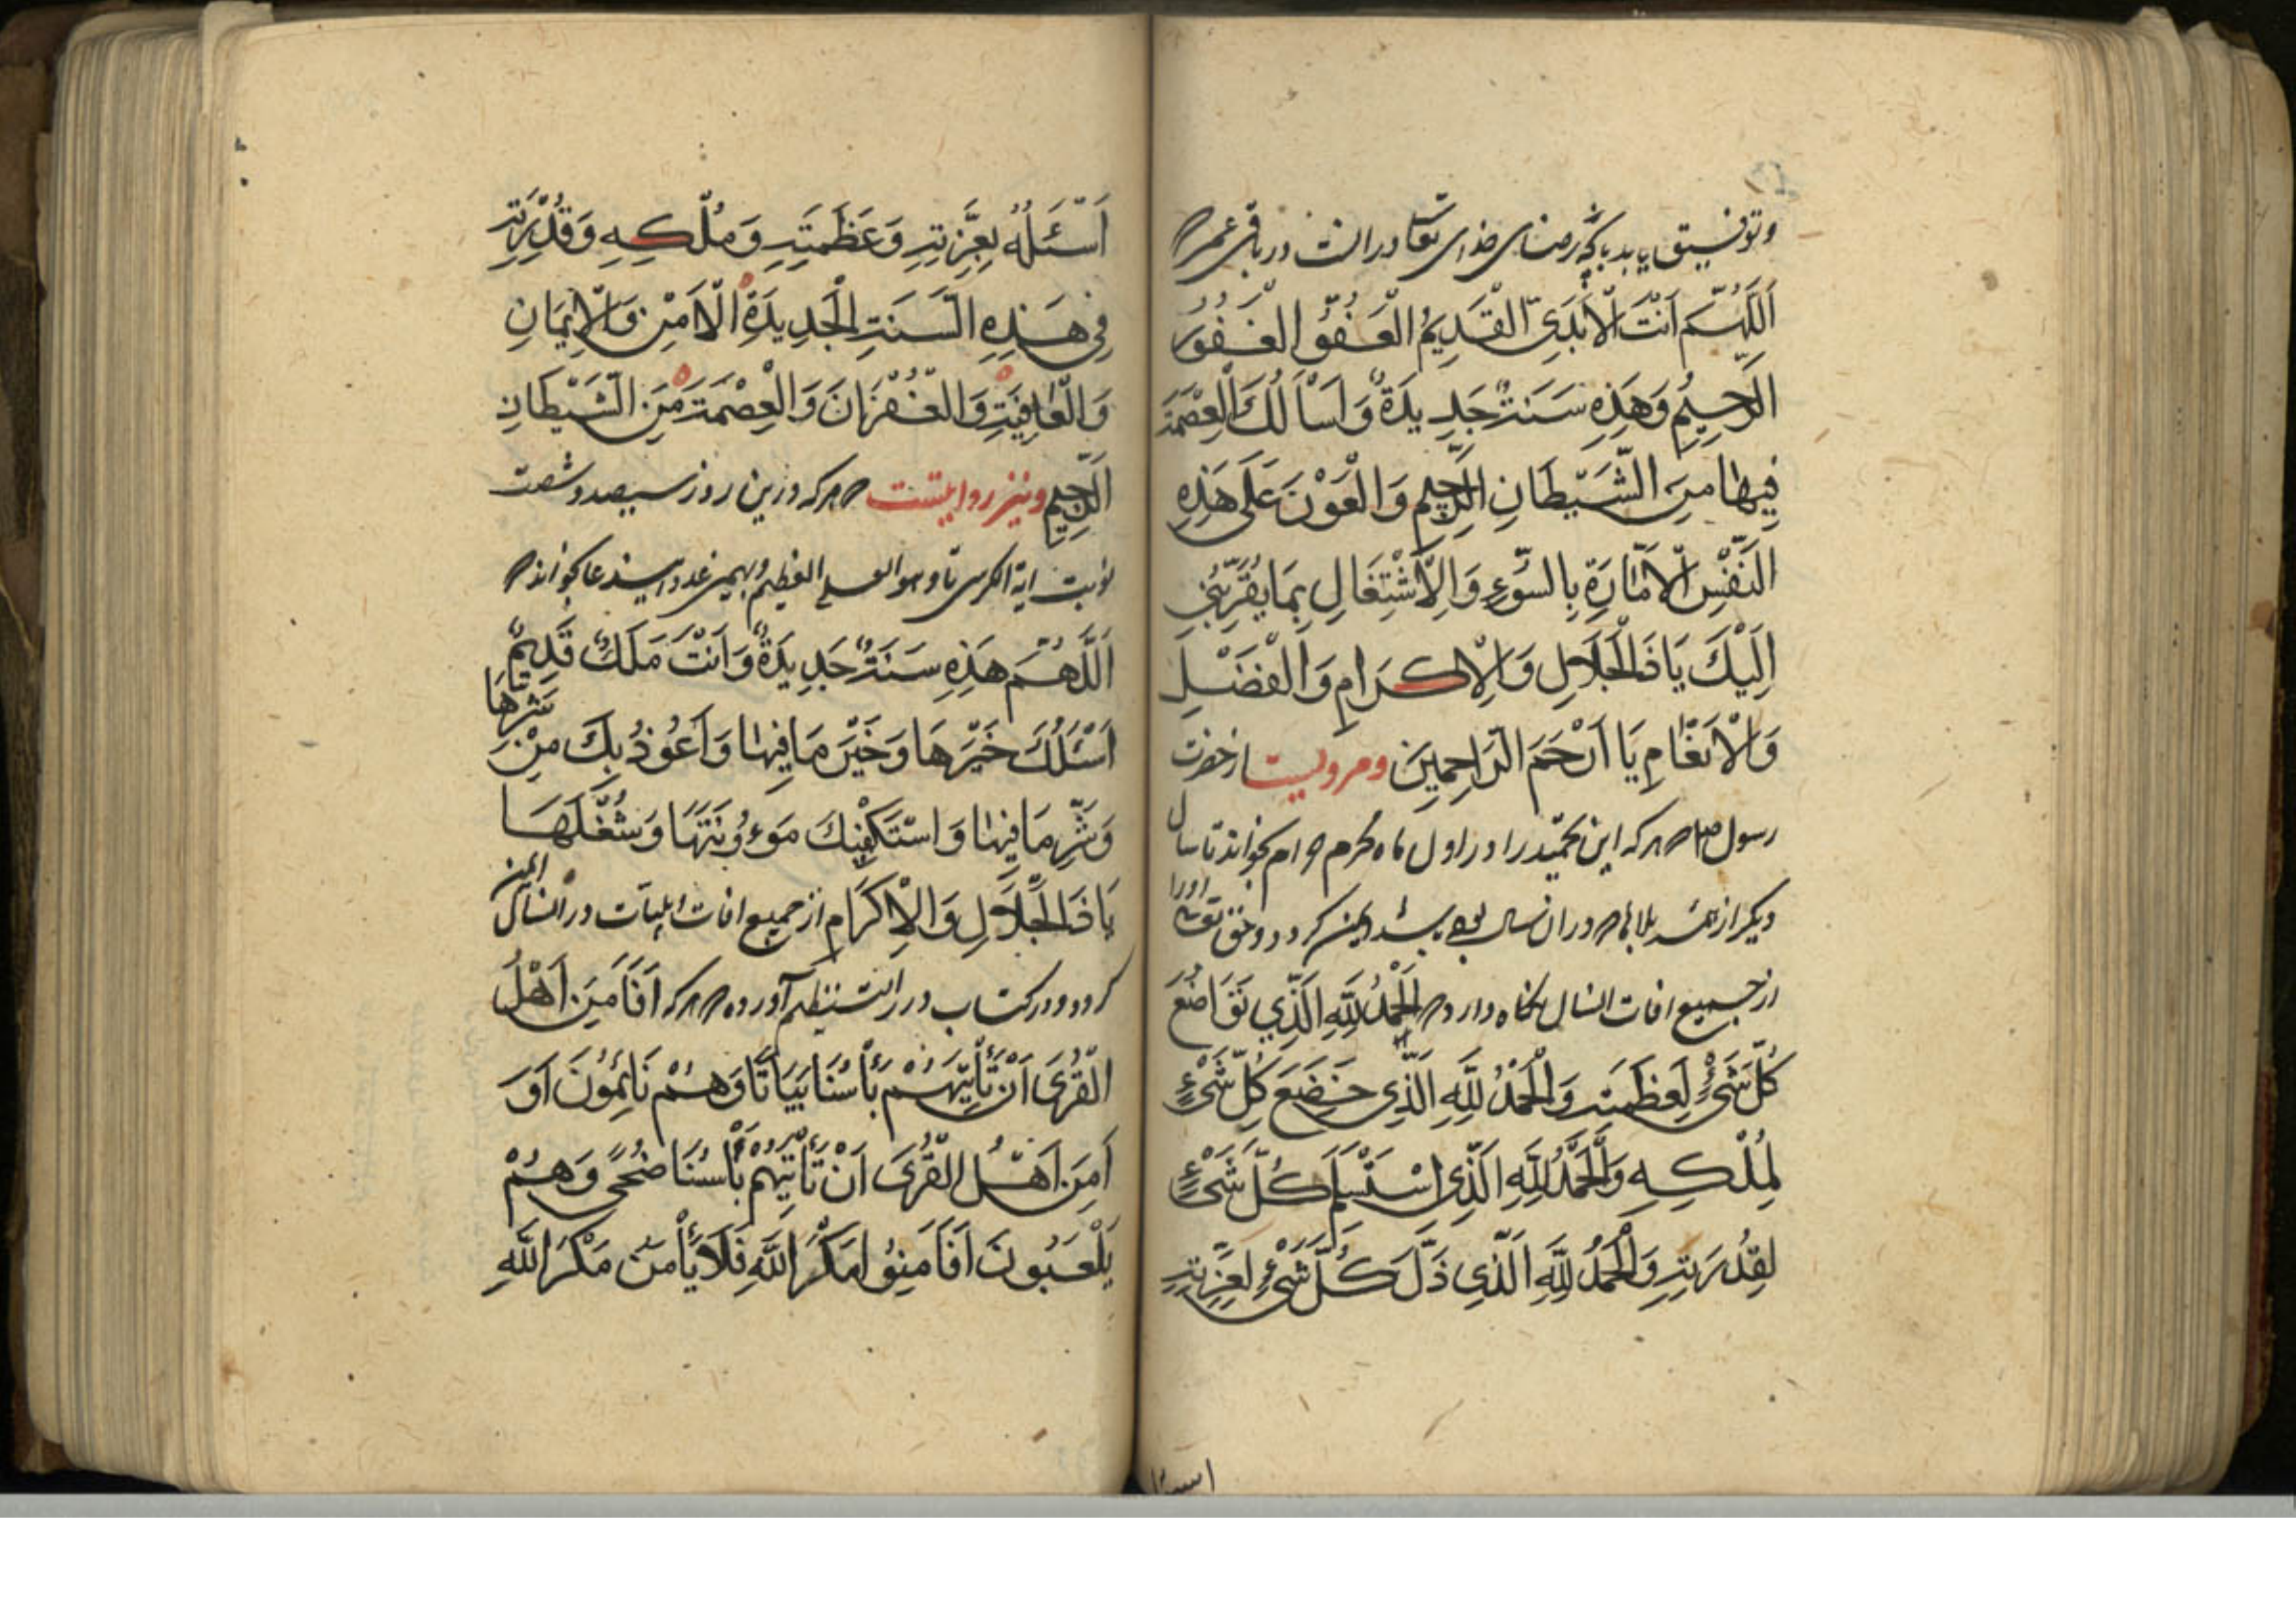 وتوفیق یابد بآنچه رضای خدای تعا در انست در باقی عمر
اَللّٰهُمَّ اَنْتَ الْاَبَدِیُّ الْقَدِیمُ الْعَفُوُّ الْغَفُورُ
الرَّحِیمُ وَهَذِهِ سَنَةٌ جَدِیدَةٌ وَاَسْاَلُكَ الْعِصْمَةَ
فِیهَا مِنَ الشَّیْطَانِ الرَّجِیمِ وَالْعَوْنَ عَلَی هَذِهِ
النَّفْسِ الْاَمَّارَةِ بِالسُّوءِ وَالْاِشْتِغَالِ بِمَا یُقَرِّبُنِی
اِلَیْكَ یَا ذَا الْجَلَالِ وَالْاِكرَامِ وَالْفَضْلِ
وَالْاَنْعَامِ یَا اَرْحَمَ الرَّاحِمِینَ ومرویست از حضرت
رسول ص هر که این تحمید را در اول ماه محرم بخواند تا سال
دیکر از همه بلاها در ان سال ایمن کردد وحق تعا اورا
از جمیع افات انسال نکاه دارد اَلْحَمْدُ لِلّٰهِ الَّذِی تَوَاضَعَ
كُلُّ شَیْءٍ لِعَظَمَتِهِ وَالْحَمْدُ لِلّٰهِ الَّذِی خَضَعَ كُلُّ شَیْءٍ
لِمُلْكِهِ وَالْحَمْدُ لِلّٰهِ الَّذِی اسْتَسْلَمَ كُلُّ شَیْءٍ
لِقُدْرَتِهِ وَالْحَمْدُ لِلّٰهِ الَّذِی ذَلَّ كُلُّ شَیْءٍ لِعِزَّتِهِ
اَسْئَلُهُ بِعِزَّتِهِ وَعَظَمَتِهِ وَمُلْكِهِ وَقُدْرَتِهِ
فِی هَذِهِ السَّنَةِ الْجَدِیدَةِ الْاَمْنَ وَالْاِیمَانِ
وَالْعَافِیَتِ وَالْغُفْرَانَ وَالْعِصْمَةَ مِنَ الشَّیْطَانِ
الرَّجِیمِ ونیز روایتست هر که درین روز سیصد وشصت
نوبت ایة الکرسی تا وهو العلی العظیم وبهمین عدد این دعا بخواند
اَللّٰهُمَّ هَذِهِ سَنَةٌ جَدِیدَةٌ وَاَنْتَ مَلَكٌ قَدِیمٌ
اَسْئَلُكَ خَیْرَهَا وَخَیْرَ مَا فِیهَا وَاَعُوذُ بِكَ مِنْ شَرِّهَا
وَشَرِّ مَا فِیهَا وَاسْتَكْفِیكَ مَوءُونَتَهَا وَشُغْلَهَا
یَا ذَا الْجَلَالِ وَالْاِكرَامِ از جمیع افات وبلیات در انسال ایمن
کردد ودر کتاب در النظیم آورده هر که اَفَاَمِنَ اَهْلُ
الْقُرَی اَنْ تَأْتِیَهُمْ بَأْسُنَا بَیَاتًا وَهُمْ نَائِمُونَ اَوَ
اَمِنَ اَهْلُ الْقُرَی اَنْ تَأْتِیَهُمْ بَأْسُنَا ضُحًی وَهُمْ
یَلْعَبُونَ اَفَاَمِنُوا مَكْرَ اللّٰهِ فَلَا یَأْمَنُ مَكْرَ اللّٰهِ